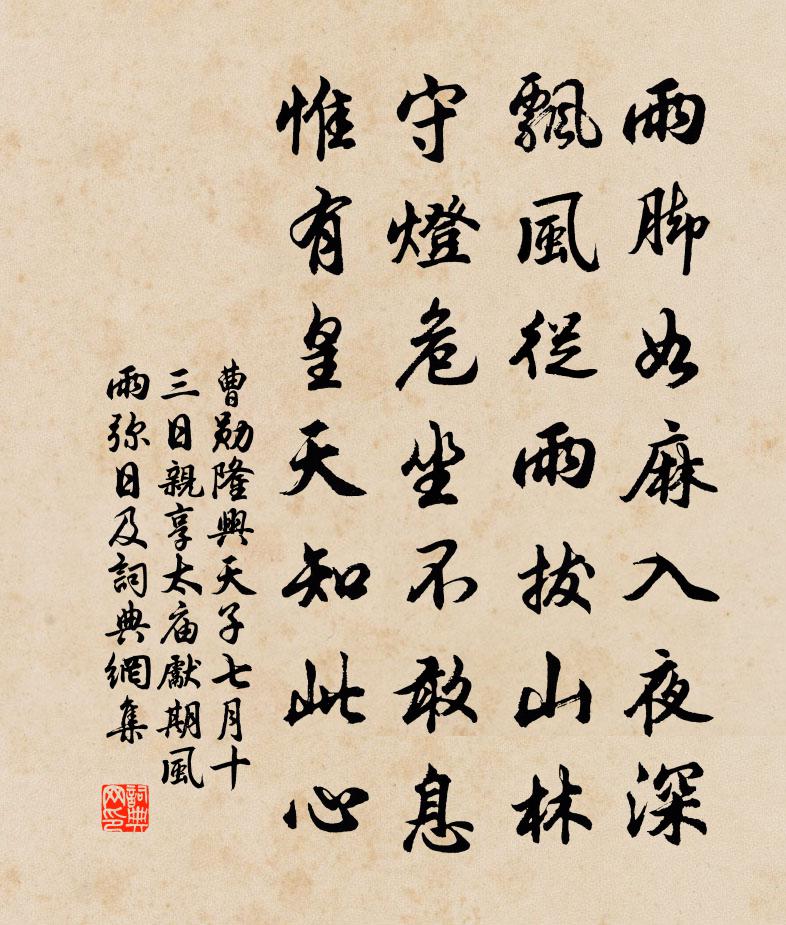 雨脚如麻入夜深
飄風從雨拔山林
守燈危坐不敢息
惟有皇天知此心
曹勛隆興天子七月十
三日親享太庙獻期風
雨弥日及詞典網集
詞典网印